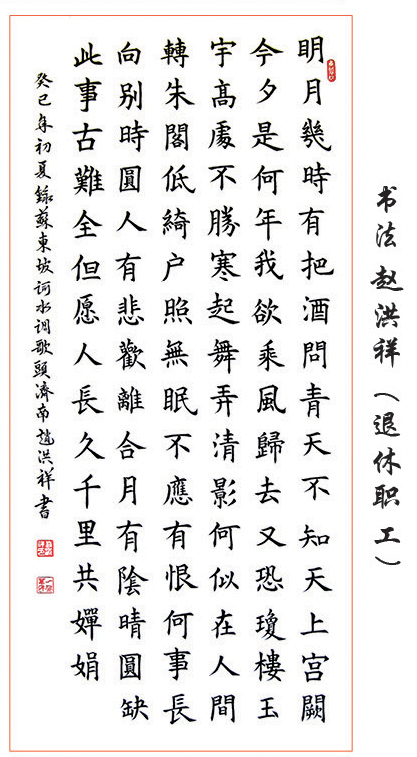 明月幾時有把酒問青天不知天上宫闕
今夕是何年我欲乘風歸去又恐瓊樓玉
宇髙處不勝寒起舞弄清影何似在人間
轉朱閣低綺户照無眠不應有恨何事長
向别時圓人有悲歡離合月有陰晴圓缺
此事古難全但愿人長久千里共嬋娟
癸巳年初夏錄蘇東坡词水调歌頭濟南趙洪祥書
书法 赵洪祥（退休职工）